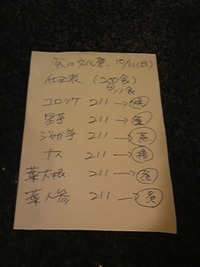 食の文化祭、10/31(日)
仕込表、(200食)
11食
コロッケ 211→
里芋 211→
ジャガ芋 211→蒸
ナス 211→揚
葉大根 211→
葉人参 211→